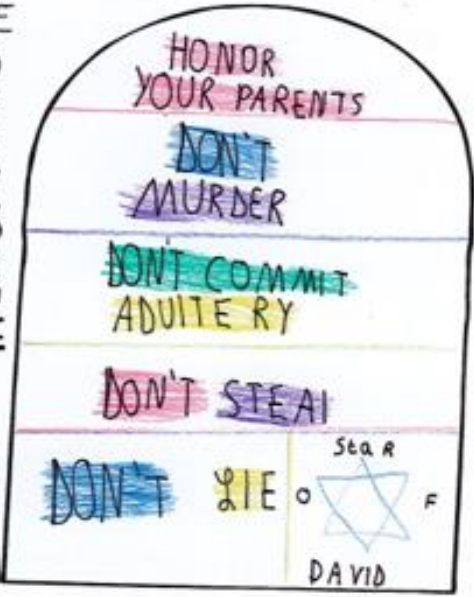 HONOR
YOUR PARENTS
DON'T
MURDER
DON'T COMMIT
ADUITERY
DON'T STEAl
DON'T LIE
StaR
O F
DAVID